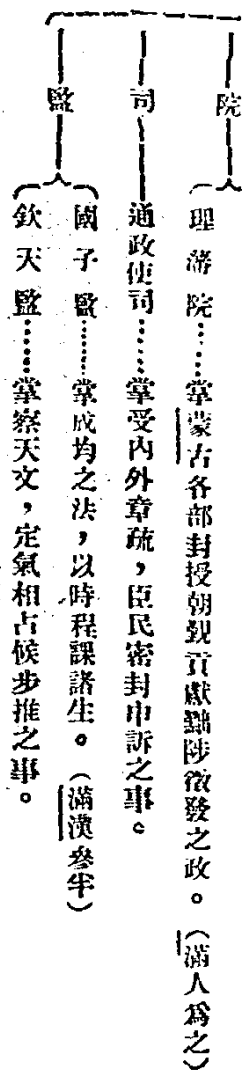 院　理藩院……掌蒙古各部封授朝覲貢獻黜陟徵發之政。（滿人爲之）
司　通政使司……掌受內外章疏，臣民密封申訴之事。
監　國子監……掌成均之法，以時程課諸生。（滿漢參半）
欽天監……掌察天文，定氣相占候步推之事。